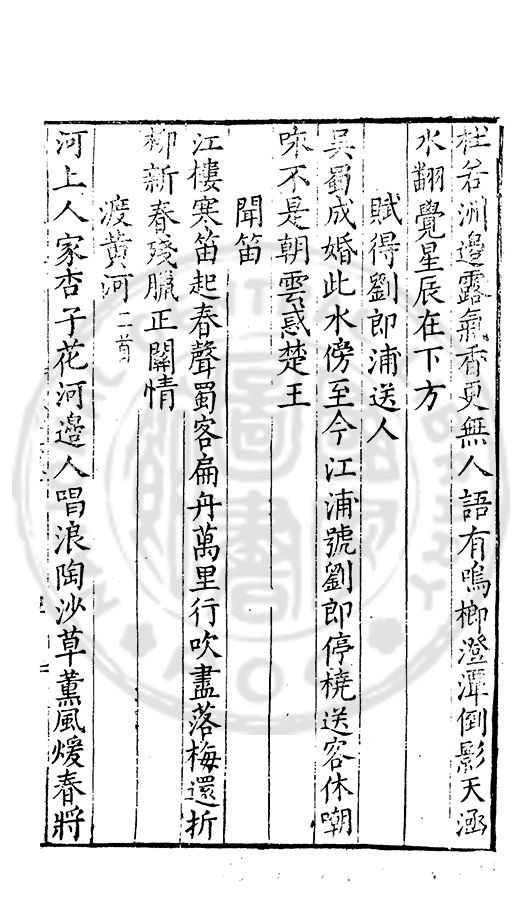 杜若洲邊露氣香更無人語有鳴榔澄潭倒影天涵
水翻覺星辰在下方
賦得劉郎浦送人
吳蜀成婚此水傍至今江浦號劉郎停橈送客休嘲
咏不是朝雲惑楚王
聞笛
江樓寒笛起春聲蜀客扁舟萬里行吹盡落梅還折
柳新春殘臘正關情
渡黃河二首
河上人家杏子花河邊人唱浪陶沙草薰風煖春將